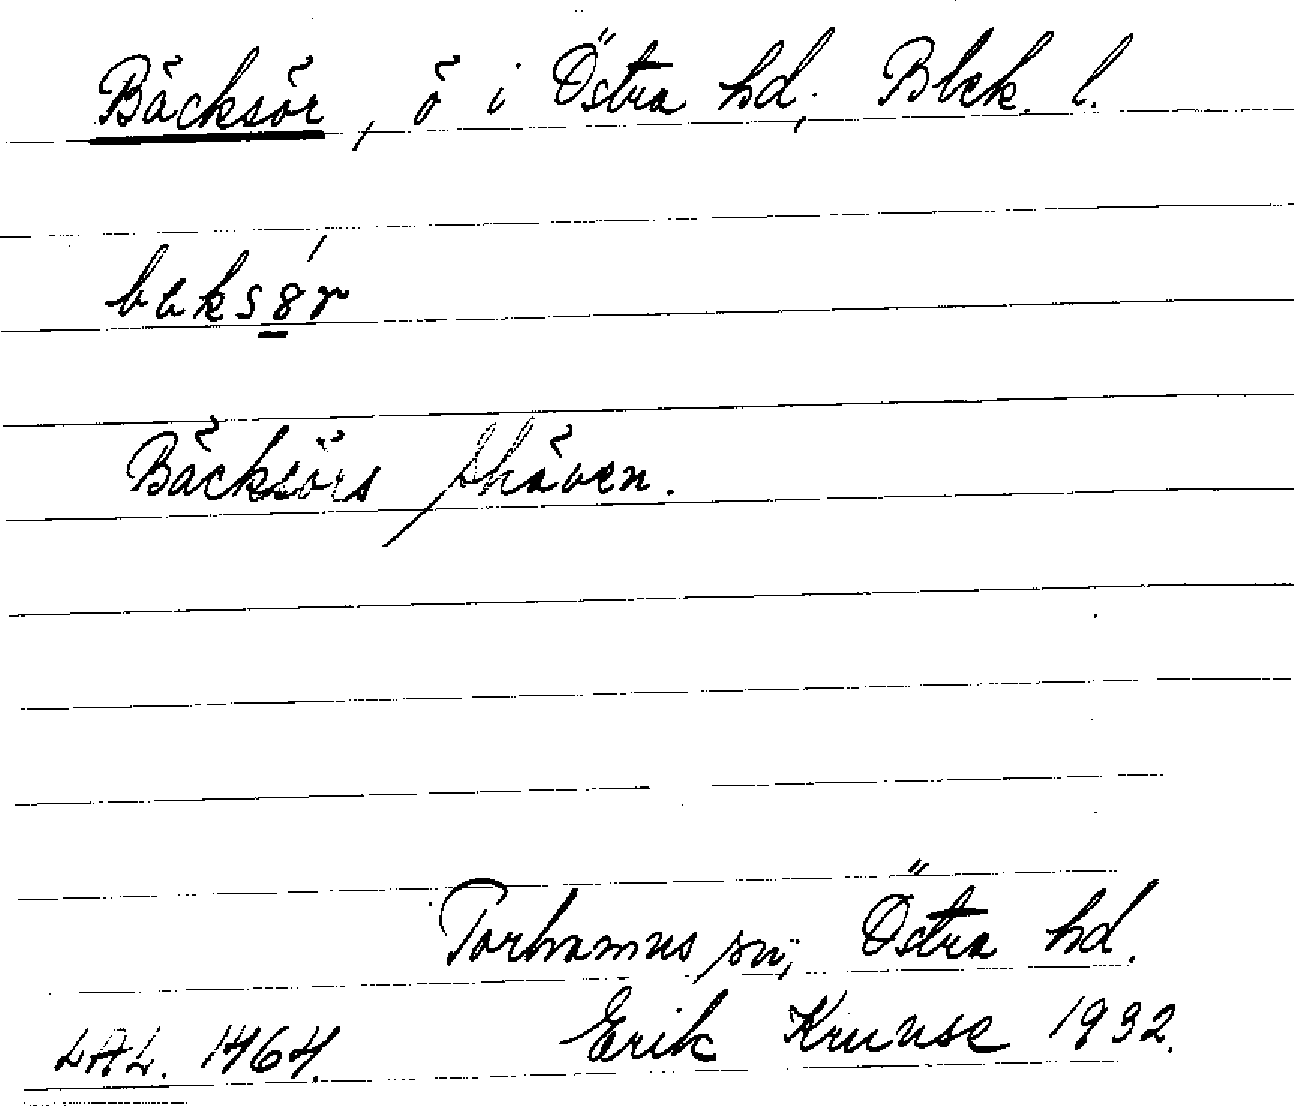 Bäcksör, ö i Östra hd, Blek. l.
Bäcksörs skären.
Torhamns sn, Östra hd.
LAL. 1464. Erik Kruuse 1932.